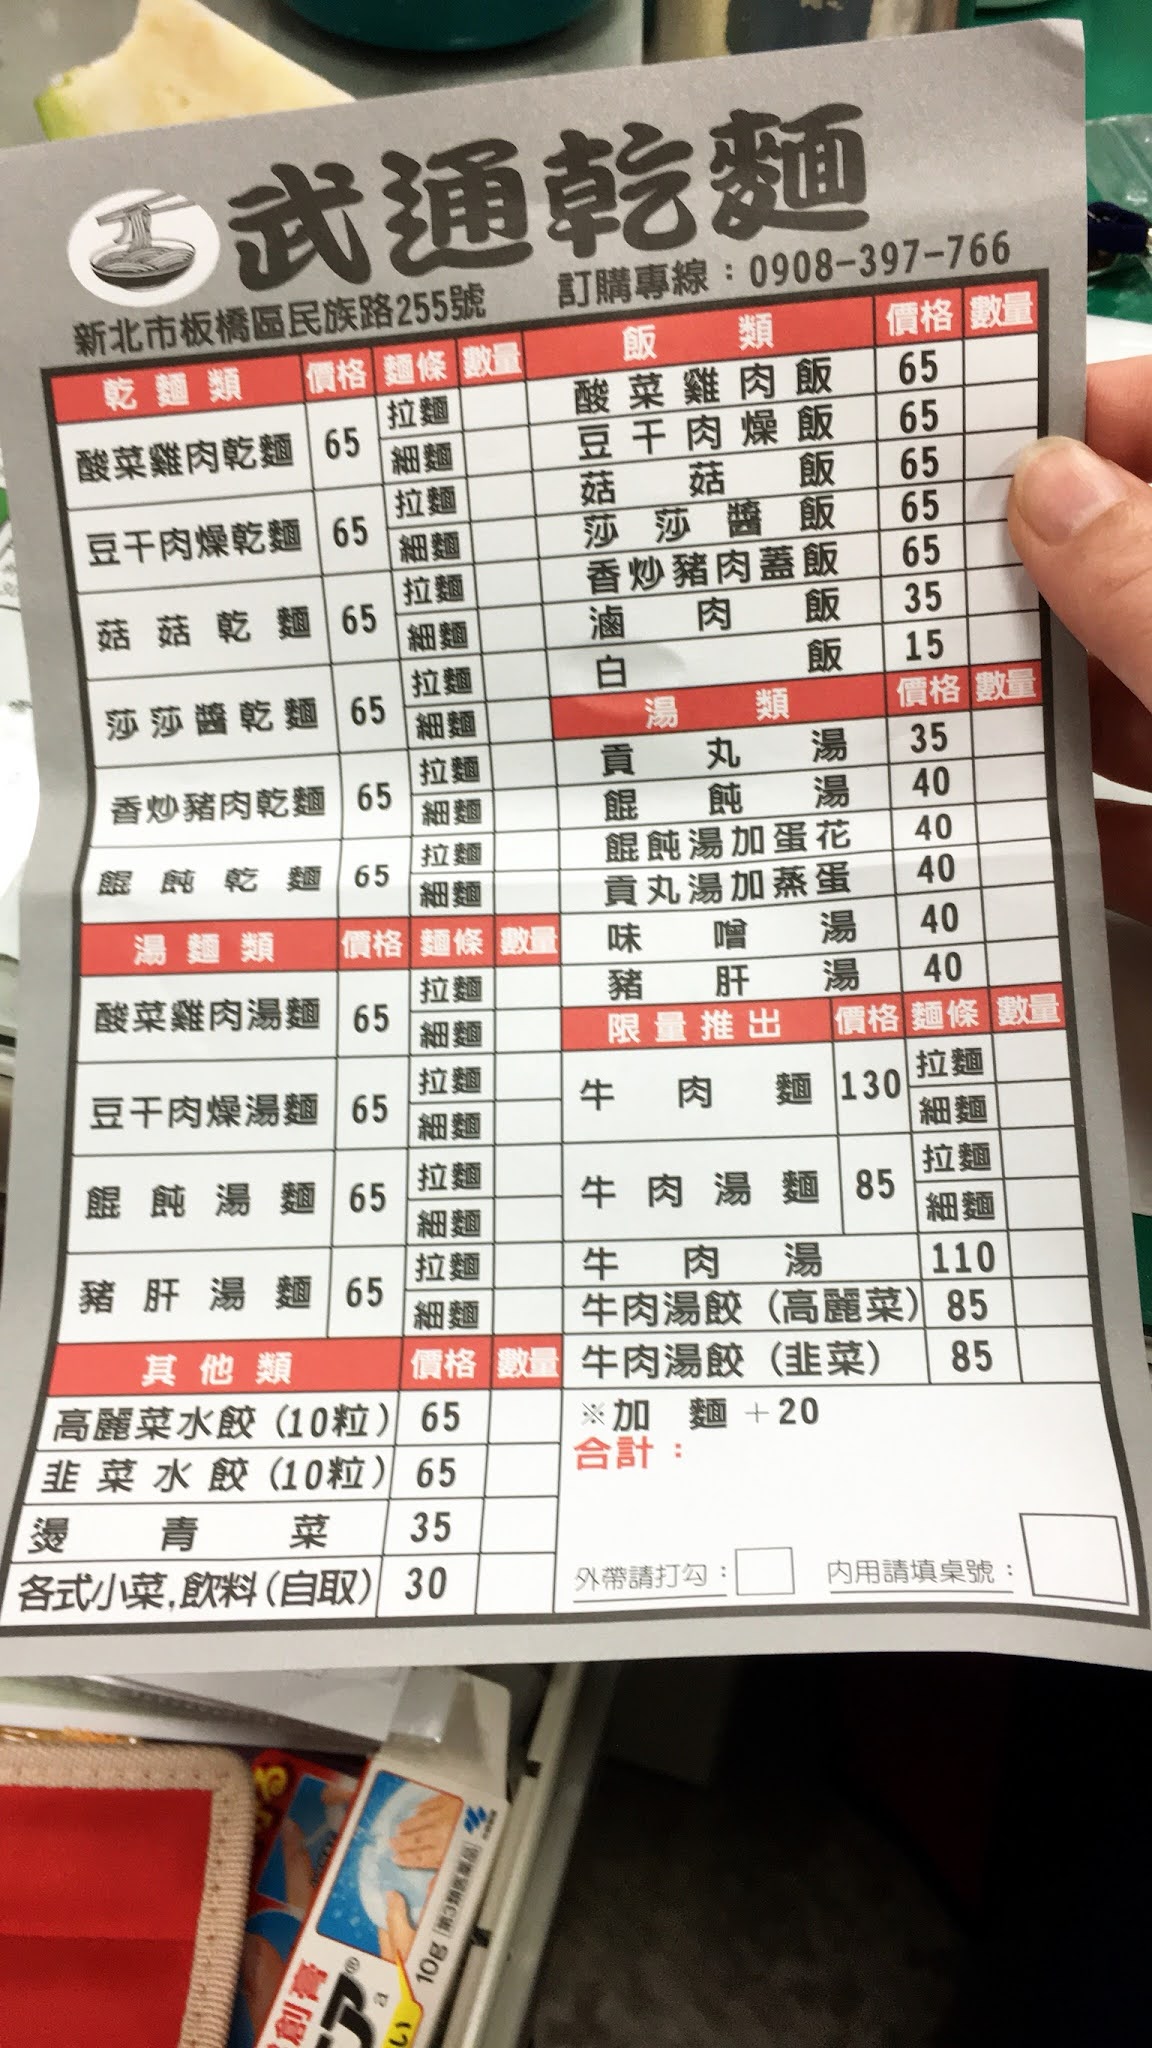 武通乾麵
新北市板橋區民族路255號
訂購專線：0908-397-766
乾麵類 價格 麵條 數量
酸菜雞肉乾麵 65 拉麵
細麵
豆干肉燥乾麵 65 拉麵
細麵
菇菇乾麵 65 拉麵
細麵
莎莎醬乾麵 65 拉麵
細麵
香炒豬肉乾麵 65 拉麵
細麵
餛飩乾麵 65 拉麵
細麵
湯麵類 價格 麵條 數量
酸菜雞肉湯麵 65 拉麵
細麵
豆干肉燥湯麵 65 拉麵
細麵
餛飩湯麵 65 拉麵
細麵
豬肝湯麵 65 拉麵
細麵
其他類 價格 數量
高麗菜水餃(10粒) 65
韭菜水餃(10粒) 65
燙青菜 35
各式小菜,飲料(自取) 30
飯類 價格 數量
酸菜雞肉飯 65
豆干肉燥飯 65
菇菇飯 65
莎莎醬飯 65
香炒豬肉蓋飯 65
滷肉飯 35
白飯 15
湯類 價格 數量
貢丸湯 35
餛飩湯 40
餛飩湯加蛋花 40
貢丸湯加蒸蛋 40
味噌湯 40
豬肝湯 40
限量推出 價格 麵條 數量
牛肉麵 130 拉麵
細麵
牛肉湯麵 85 拉麵
細麵
牛肉湯 110
牛肉湯餃(高麗菜) 85
牛肉湯餃(韭菜) 85
※加麵+20
合計：
外帶請打勾： 內用請填桌號：
10g 第3類医薬品
創膏
ア®
a
い